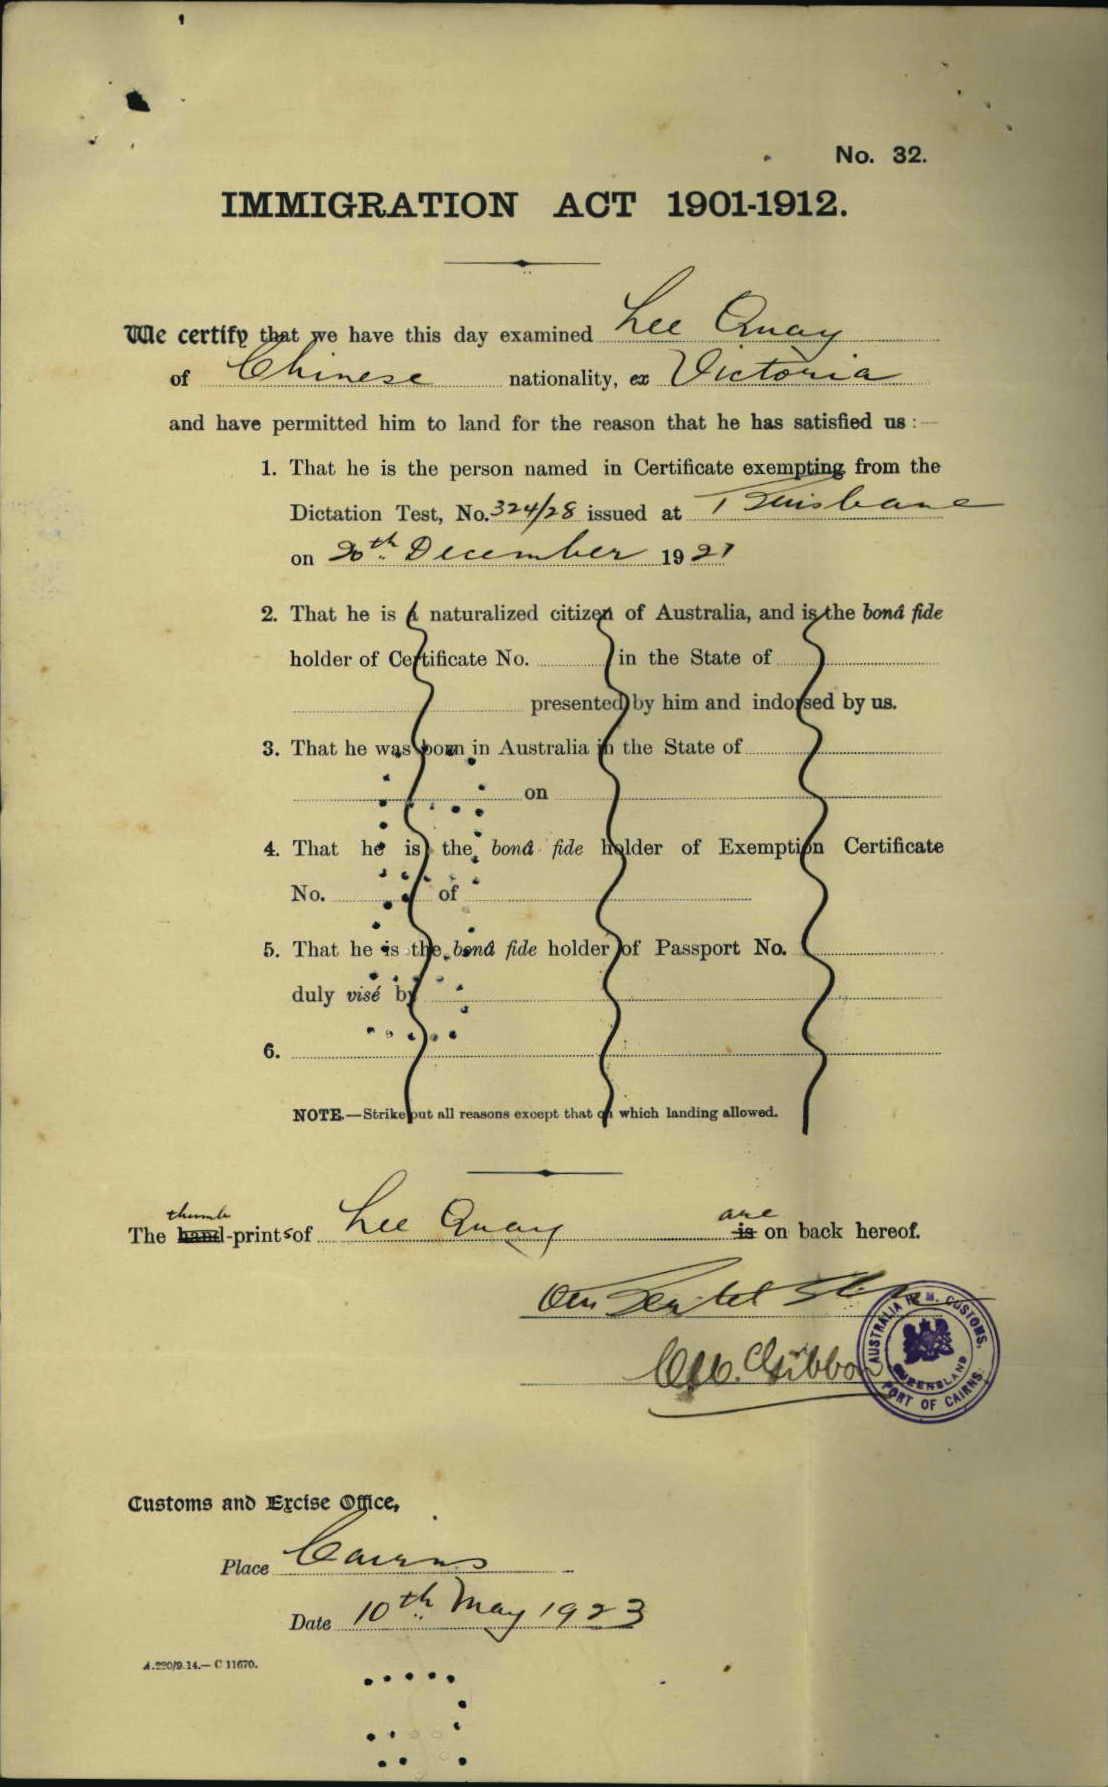 No. 32.
IMMIGRATION ACT 1901-1912.
We certify that we have this day examined Lee Quay
of Chinese nationality, ex Victoria
and have permitted him to land for the reason that he has satisfied us :—
1. That he is the person named in Certificate exempting from the
Dictation Test, No. 324/28 issued at Brisbane
on 20th December 1921
2. That he is a naturalized citizen of Australia, and is the bonâ fide
holder of Certificate No. in the State of
presented by him and indorsed by us.
3. That he was born in Australia in the State of
on
4. That he is the bonâ fide holder of Exemption Certificate
No. of
5. That he is the bonâ fide holder of Passport No.
duly visé by
6.
NOTE.—Strike out all reasons except that on which landing allowed.
thumb are
The hand-prints of Lee Quay is on back hereof.
Gibbon
AUSTRALIA H.M. CUSTOMS.
QUEENSLAND
PORT OF CAIRNS.
Customs and Excise Office,
Place Cairns
Date 10th May 1923
A.220/9.14.— C 11670.